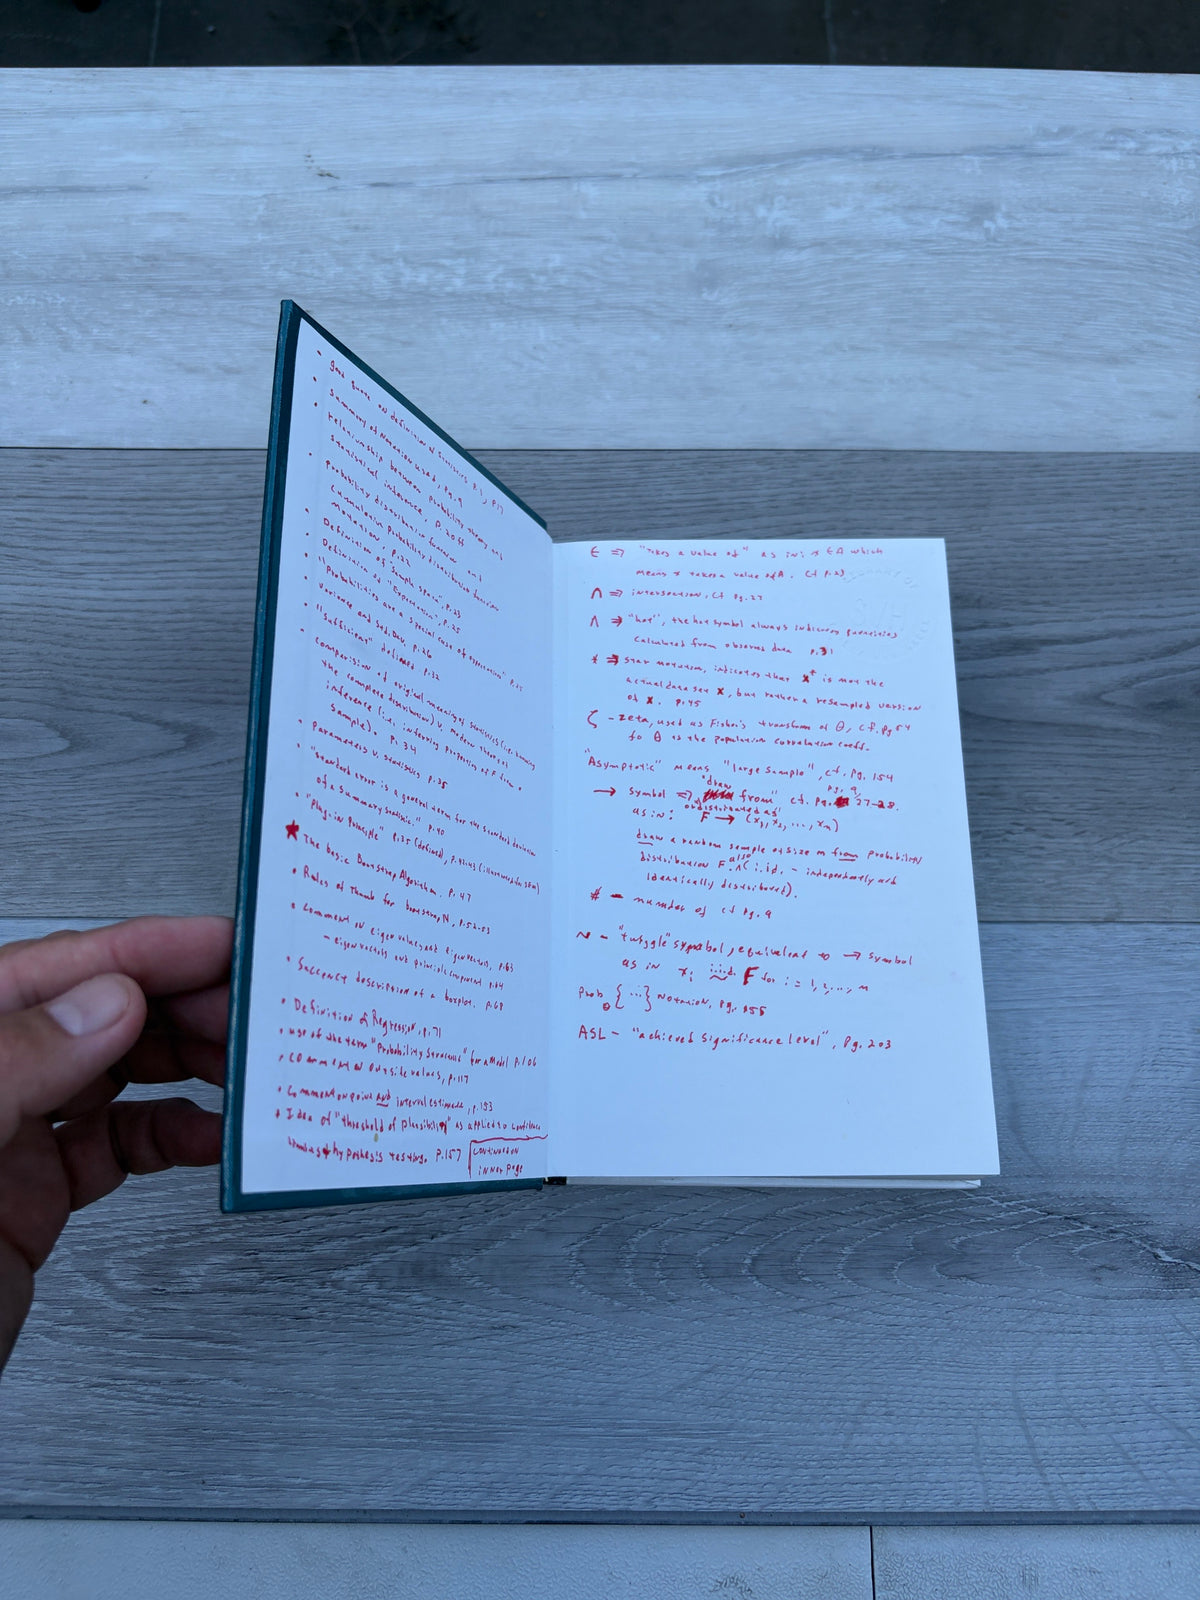 • good quote on definition of Statistics p.1, p17
• Summary of Notation used, pg. 9
• relationship between probability theory and
statistical inference, p. 20ff
• Probability distribution function and
Cumulative Probability distribution function
Notation, p.22
• Definition of Sample Space, p.23
• Definition of "Expectation", p.25
• "Probabilities are a special case of expectation" p.25
• Variance and Std. Dev. p.26
• "Sufficient" defined p.32
• comparison of original meaning of statistics (i.e. having
the complete distribution) v. modern theory of
inference (i.e., inferring properties of F from a
sample). p. 34
• Parameters v. statistics p.35
• "standard error is a general term for the standard deviation
of a summary statistic." p. 40
• "Plug-in Principle" p.35 (defined), p.42-43 (illustrated for SEM)
★ The basic Bootstrap Algorithm. p. 47
• Rules of thumb for bootstrap N, p.52-53
• Comment on eigenvalues and eigenvectors, p.63
– eigenvectors and principle component p.64
• Succinct description of a boxplot. p.68
• Definition of Regression, p.71
• use of the term "Probability Structure" for a Model p.106
• comment on outside values, p.117
• Comment on point and interval estimate, p.153
• Idea of "threshold of plausibility" as applied to confidence
hypothesis testing. p.157
continued on
inner page
∈ ⇒ "takes a value of" as in: x ∈ A which
means x takes a value of A. cf p.23
∩ ⇒ intersection, cf pg. 27
∧ ⇒ "hat", the hat symbol always indicates quantities
calculated from observed data p.31
* ⇒ star notation, indicates that x* is not the
actual data set x, but rather a resampled version
of x. p.45
ζ – zeta, used as Fisher's transform of θ, cf. pg 54
θ is the population correlation coeff.
"Asymptotic" means "large sample", cf. pg. 154
→ symbol ⇒ "draw from" cf. pg. 9, 27-28.
or distributed as
as in: F → (x₁, x₂, ..., xₙ)
draw a random sample of size n from probability
distribution F. also (i.i.d. – independently and
identically distributed).
# – number of cf pg. 9
~ – "twiggle" symbol, equivalent to → symbol
as in xᵢ i.i.d. ~ F for i = 1, 2, ..., n
Prob θ {...} Notation, pg. 155
ASL – "achieved significance level", pg. 203